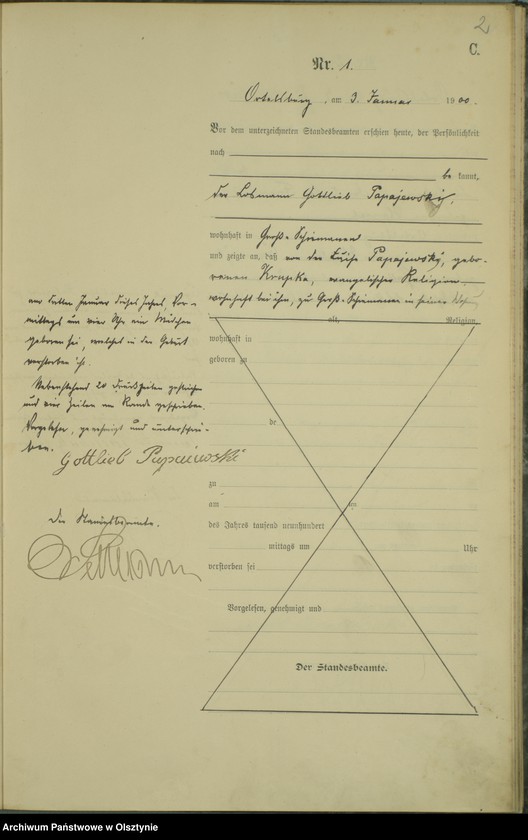 2
C.
Nr. 1.
Ortelsburg, am 3. Januar 1900.
Vor dem unterzeichneten Standesbeamten erschien heute, der Persönlichkeit
nach
bekannt,
der Losmann Gottlieb Papajewski,
wohnhaft in Groß-Schiemanen
und zeigte an, daß von der Luise Papajewsky, gebo-
renen Krupka, evangelischer Religion,
wohnhaft bei ihm, zu Groß-Schiemanen in seiner
alt, Religion,
wohnhaft in
geboren zu
de
zu
am ten
des Jahres tausend neunhundert
mittags um Uhr
verstorben sei
Vorgelesen, genehmigt und
Der Standesbeamte.
am dritten Januar dieses Jahres, Vor-
mittags um vier Uhr ein Mädchen
geboren sei, welches in der Geburt
verstorben ist.
Nebenstehend 20 Druckzeilen gestrichen
und vier Zeilen am Rande geschrieben.
Vorgelesen, genehmigt und unterschrie-
ben.
Gottlieb Papaiewski
Der Standesbeamte.
Archiwum Państwowe w Olsztynie